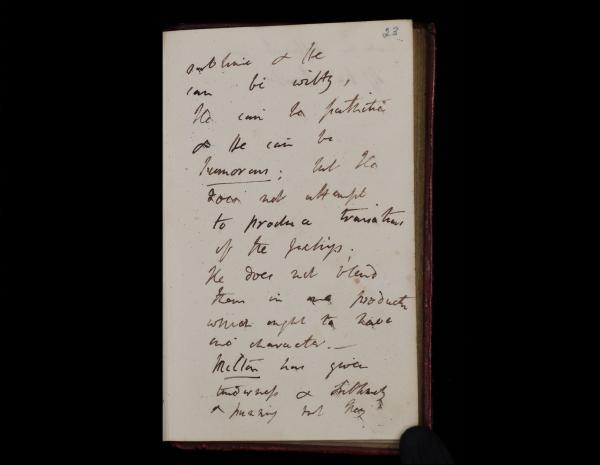 23
sublime & He
can be witty,
He can be pathetic
& He can be
humorous; but He
does not attempt
to produce transitions
of the feelings;
He does not blend
them in one production
which ought to have
one character. —
Milton has given
tenderness & sublimity
& meaning but